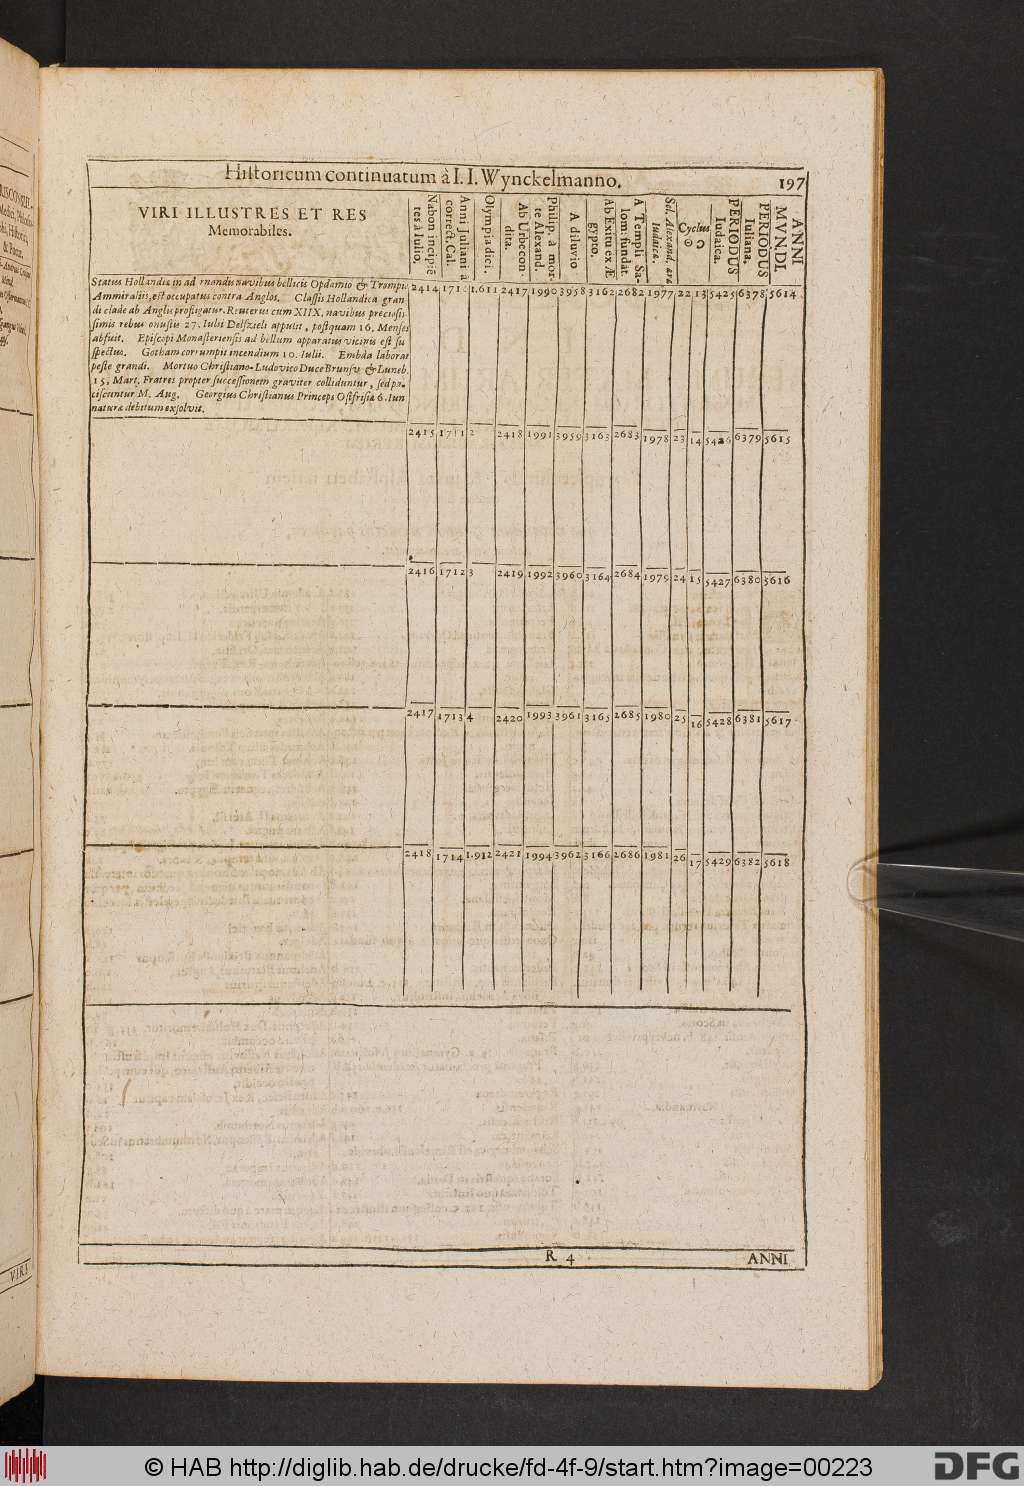 Historicum continuatum à I. I. Wynckelmanno. 197
VIRI ILLUSTRES ET RES
Memorabiles.
Nabon incipiẽ
tes à Iulio,
Anni Juliani à
correct. Cal.
Olympiadici.
Ab Urbe con-
dita.
Philip. à mor-
te Alexand.
A diluvio
Ab Exitu ex Æ
gypto.
A Templi Sa-
lom: fundat.
Sel. Alexand. æra
Iudaica.
Cyclus
☉ ☽
PERIODUS
Iudaica.
PERIODUS
Iuliana.
ANNI
MVNDI.
Status Hollandiæ in ad rnandis navibus bellicis Opdamio & Trompiι
Ammiraliis, est occupatus contra Anglos. Classis Hollandica gran
di clade ab Anglis profligatur. Reuterus cum XIIX. navibus preciosis-
simis rebus onustis 27. Iulii Delfzieli appulit, postquam 16. Menses
abfuit. Episcopi Monasteriensis ad bellum apparatus vicinis est su
spectus. Gotham corrumpit incendium 10. Iulii. Embda laborat
peste grandi. Mortuo Christiano-Ludovico Duce Brunsv. & Luneb.
15. Mart. Fratres propter successionem graviter colliduntur, sed pa-
ciscuntur M. Aug. Georgius Christianus Princeps Ostfrisiæ 6. Iun
naturæ debitum exsolvit.
2414 1710 1.611 2417 1990 3958 3162 2682 1977 22 13 5425 6378 5614
2415 1711 2 2418 1991 3959 3163 2683 1978 23 14 5426 6379 5615
2416 1712 3 2419 1992 3960 3164 2684 1979 24 15 5427 6380 5616
2417 1713 4 2420 1993 3961 3165 2685 1980 25 16 5428 6381 5617
2418 1714 1.912 2421 1994 3962 3166 2686 1981 26 17 5429 6382 5618
R 4 ANNI
VIRI
© HAB http://diglib.hab.de/drucke/fd-4f-9/start.htm?image=00223
DFG